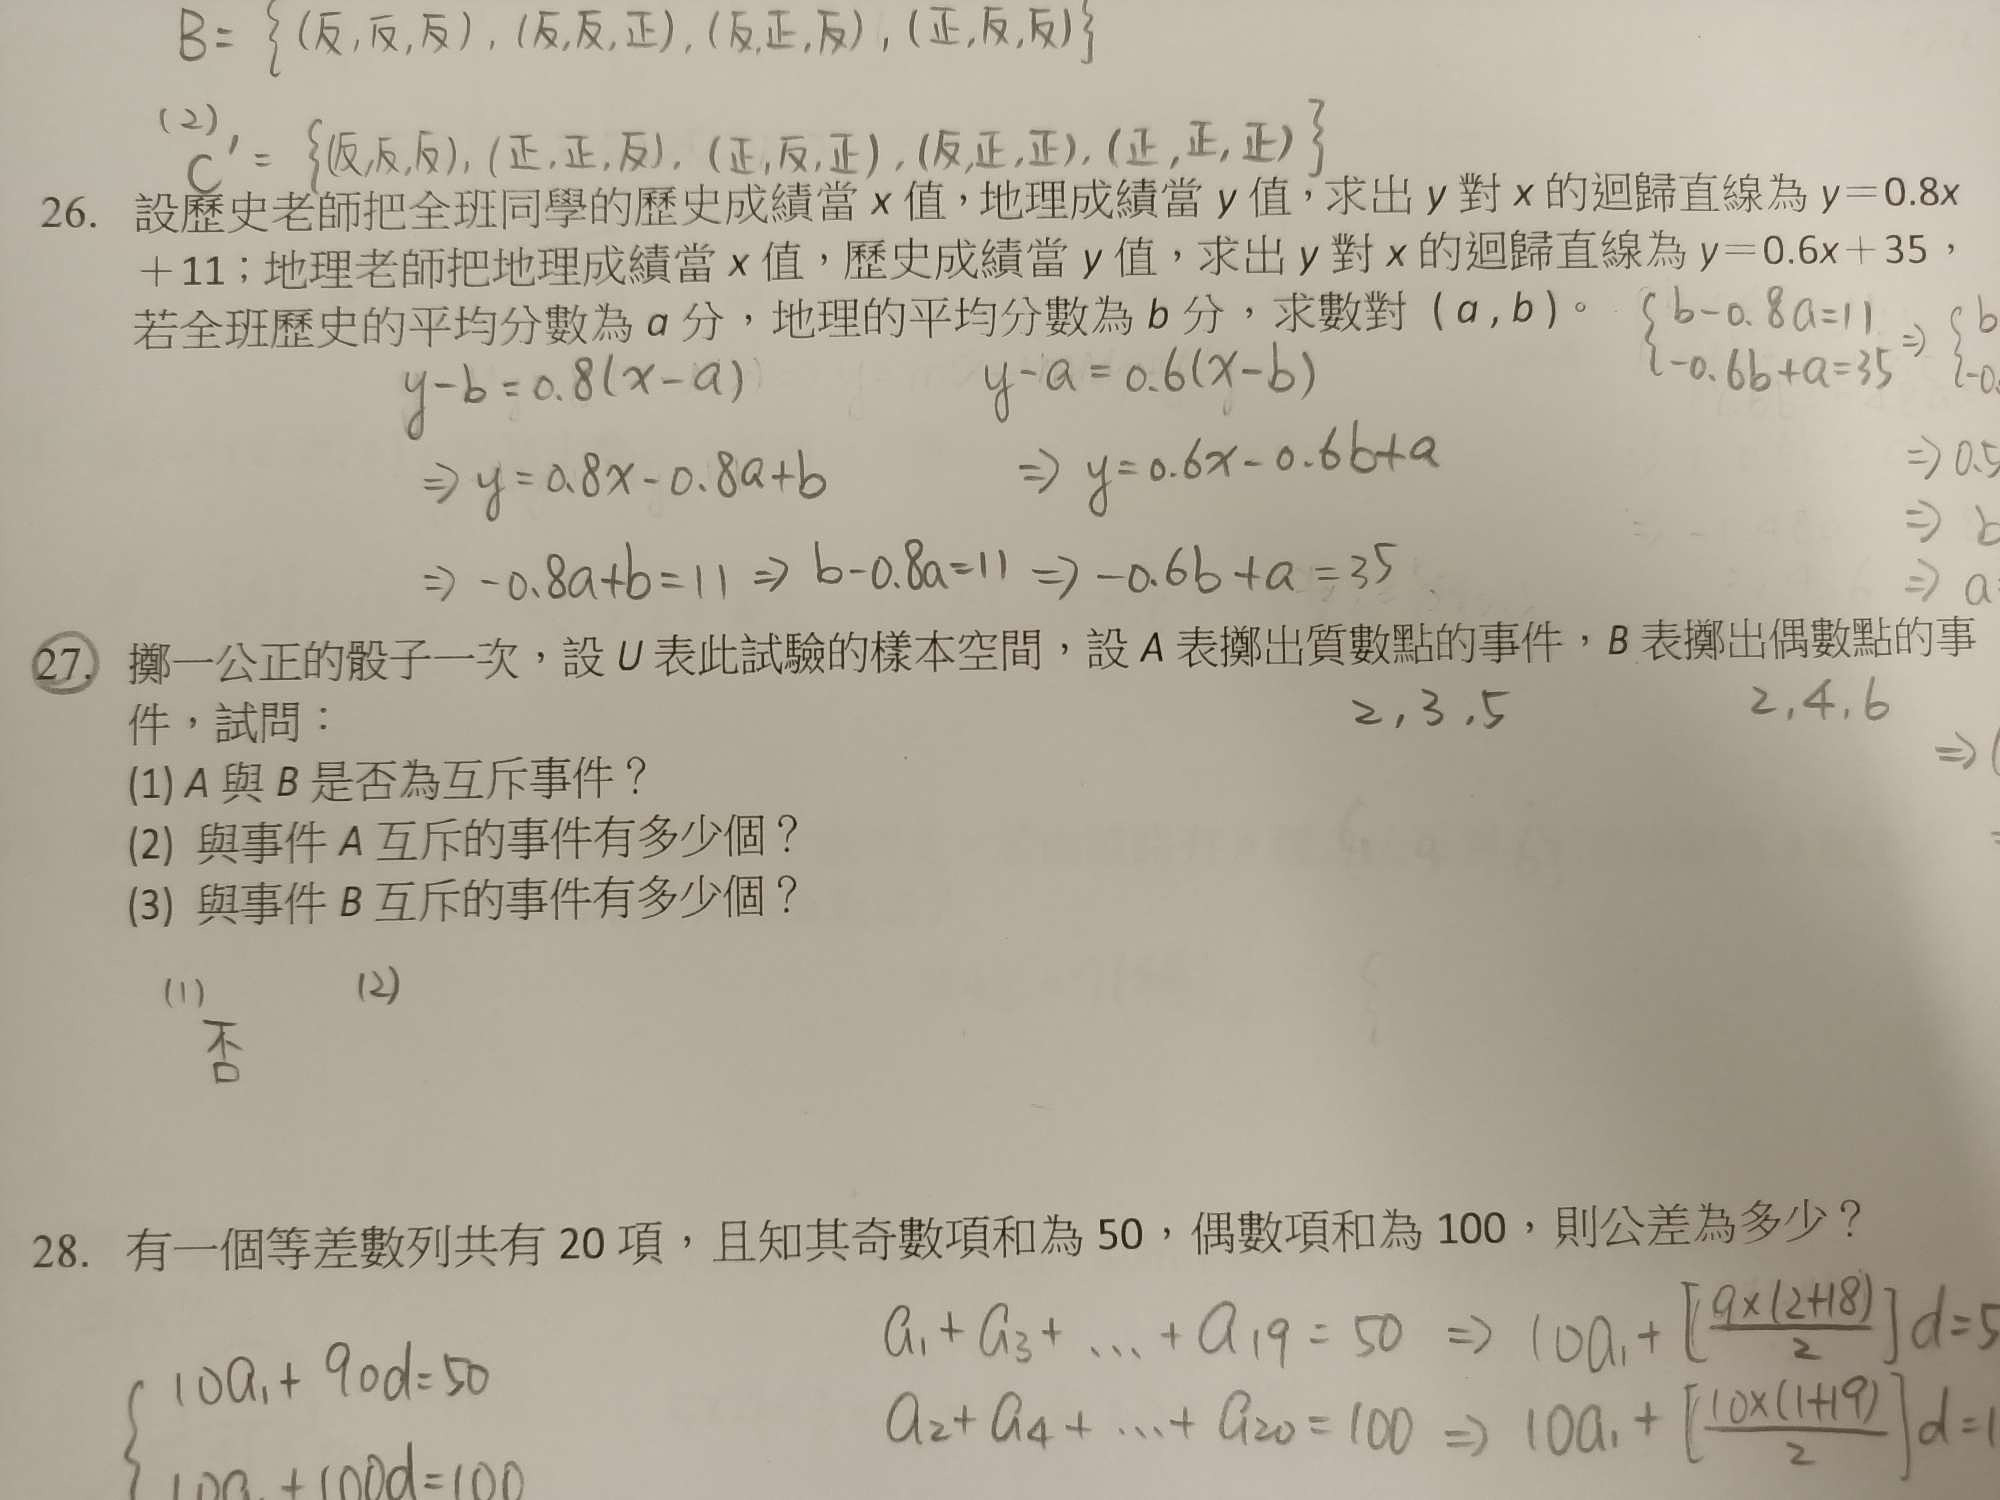 B={(反,反,反),(反,反,正),(反,正,反),(正,反,反)}
(2)
C'={(反,反,反),(正,正,反),(正,反,正),(反,正,正),(正,正,正)}
26. 設歷史老師把全班同學的歷史成績當 x 值，地理成績當 y 值，求出 y 對 x 的迴歸直線為 y＝0.8x
＋11；地理老師把地理成績當 x 值，歷史成績當 y 值，求出 y 對 x 的迴歸直線為 y＝0.6x＋35，
若全班歷史的平均分數為 a 分，地理的平均分數為 b 分，求數對 (a,b)。
{b-0.8a=11 ⇒ {b
{-0.6b+a=35 {-0.
y-b=0.8(x-a) y-a=0.6(x-b)
⇒ y=0.8x-0.8a+b ⇒ y=0.6x-0.6b+a ⇒ 0.5
⇒ b
⇒ -0.8a+b=11 ⇒ b-0.8a=11 ⇒ -0.6b+a=35 ⇒ a=
27. 擲一公正的骰子一次，設 U 表此試驗的樣本空間，設 A 表擲出質數點的事件，B 表擲出偶數點的事
2,3,5 2,4,6
件，試問：
⇒(
(1) A 與 B 是否為互斥事件？
(2) 與事件 A 互斥的事件有多少個？
(3) 與事件 B 互斥的事件有多少個？
(1) (2)
否
28. 有一個等差數列共有 20 項，且知其奇數項和為 50，偶數項和為 100，則公差為多少？
a₁+a₃+...+a₁₉=50 ⇒ 10a₁+[9×(2+18)/2]d=5
{10a₁+90d=50
a₂+a₄+...+a₂₀=100 ⇒ 10a₁+[10×(1+19)/2]d=1
10a₁+100d=100